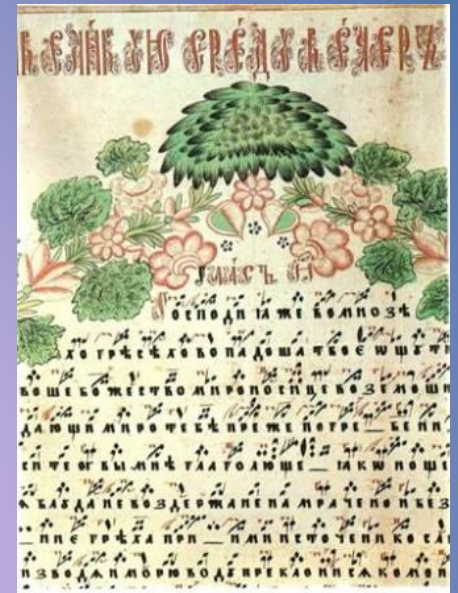 великꙋю срє́дꙋ вє́чєръ
гласъ и҃
Господи ꙗже во мнозѣ
хо грѣсѣхо вопадоша твоє ѡщꙋти
воше божество мироносице воземоши
дающи миро тебѣ преже погре — бени
мнѣ глаголюше — ꙗкѡ ноще
блꙋда невоздержанена мрачено и без
ние грѣха при — ими источеники сле
изводѧи морю водꙋ преклонисѧ ко мои